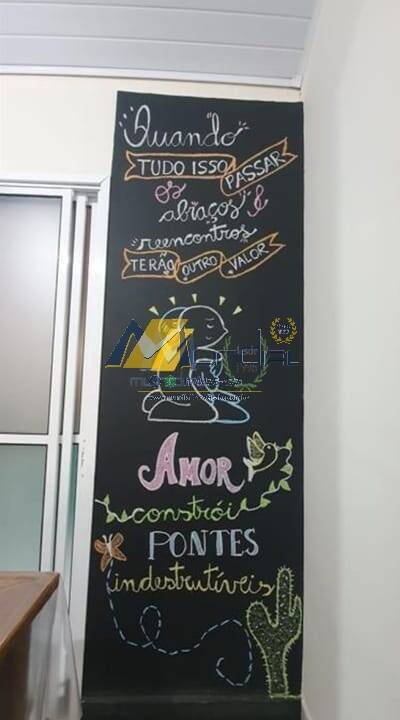 Quando
TUDO ISSO PASSAR
os
abraços &
reencontros
TERÃO OUTRO VALOR
AMOR
constrói
PONTES
indestrutíveis